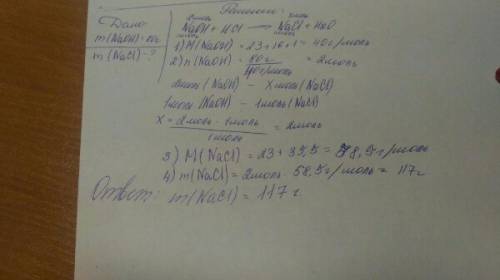 Решение:
Дано
m(NaOH) = 80г
m(NaCl) - ?
2моль xмоль
NaOH + HCl → NaCl + H2O
1моль 1моль
1) M(NaOH) = 23+16+1 = 40г/моль
2) n(NaOH) = 80г / 40г/моль = 2моль
2моль (NaOH) - X моль (NaCl)
1моль (NaOH) - 1моль (NaCl)
X = 2моль · 1моль / 1моль = 2моль
3) M(NaCl) = 23 + 35,5 = 58,5г/моль
4) m(NaCl) = 2моль · 58,5г/моль = 117г
Ответ: m(NaCl) = 117г.